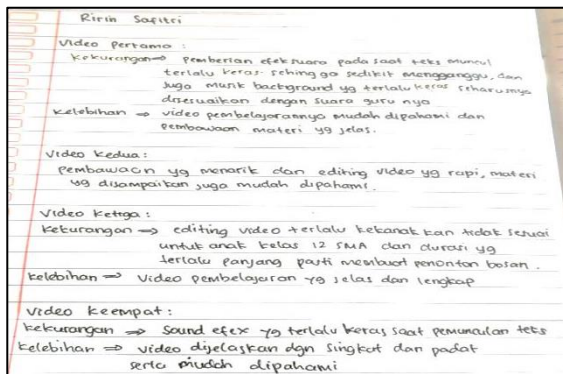 Ririn Safitri
Video pertama :
Kekurangan ⇒ pemberian efek suara pada saat teks muncul
terlalu keras. sehingga sedikit mengganggu, dan
juga musik background yg terlalu keras seharusnya
disesuaikan dengan suara guru nya
Kelebihan ⇒ video pembelajarannya mudah dipahami dan
pembawaan materi yg jelas.
Video kedua :
pembawaan yg menarik dan editing video yg rapi, materi
yg disampaikan juga mudah dipahami.
Video ketiga :
Kekurangan ⇒ editing video terlalu kekanak kan tidak sesuai
untuk anak kelas 12 SMA dan durasi yg
terlalu panjang pasti membuat penonton bosan.
Kelebihan ⇒ Video pembelajaran yg jelas dan lengkap
Video keempat :
Kekurangan ⇒ Sound efex yg terlalu keras saat pemunculan teks
Kelebihan ⇒ video dijelaskan dgn singkat dan padat
serta mudah dipahami